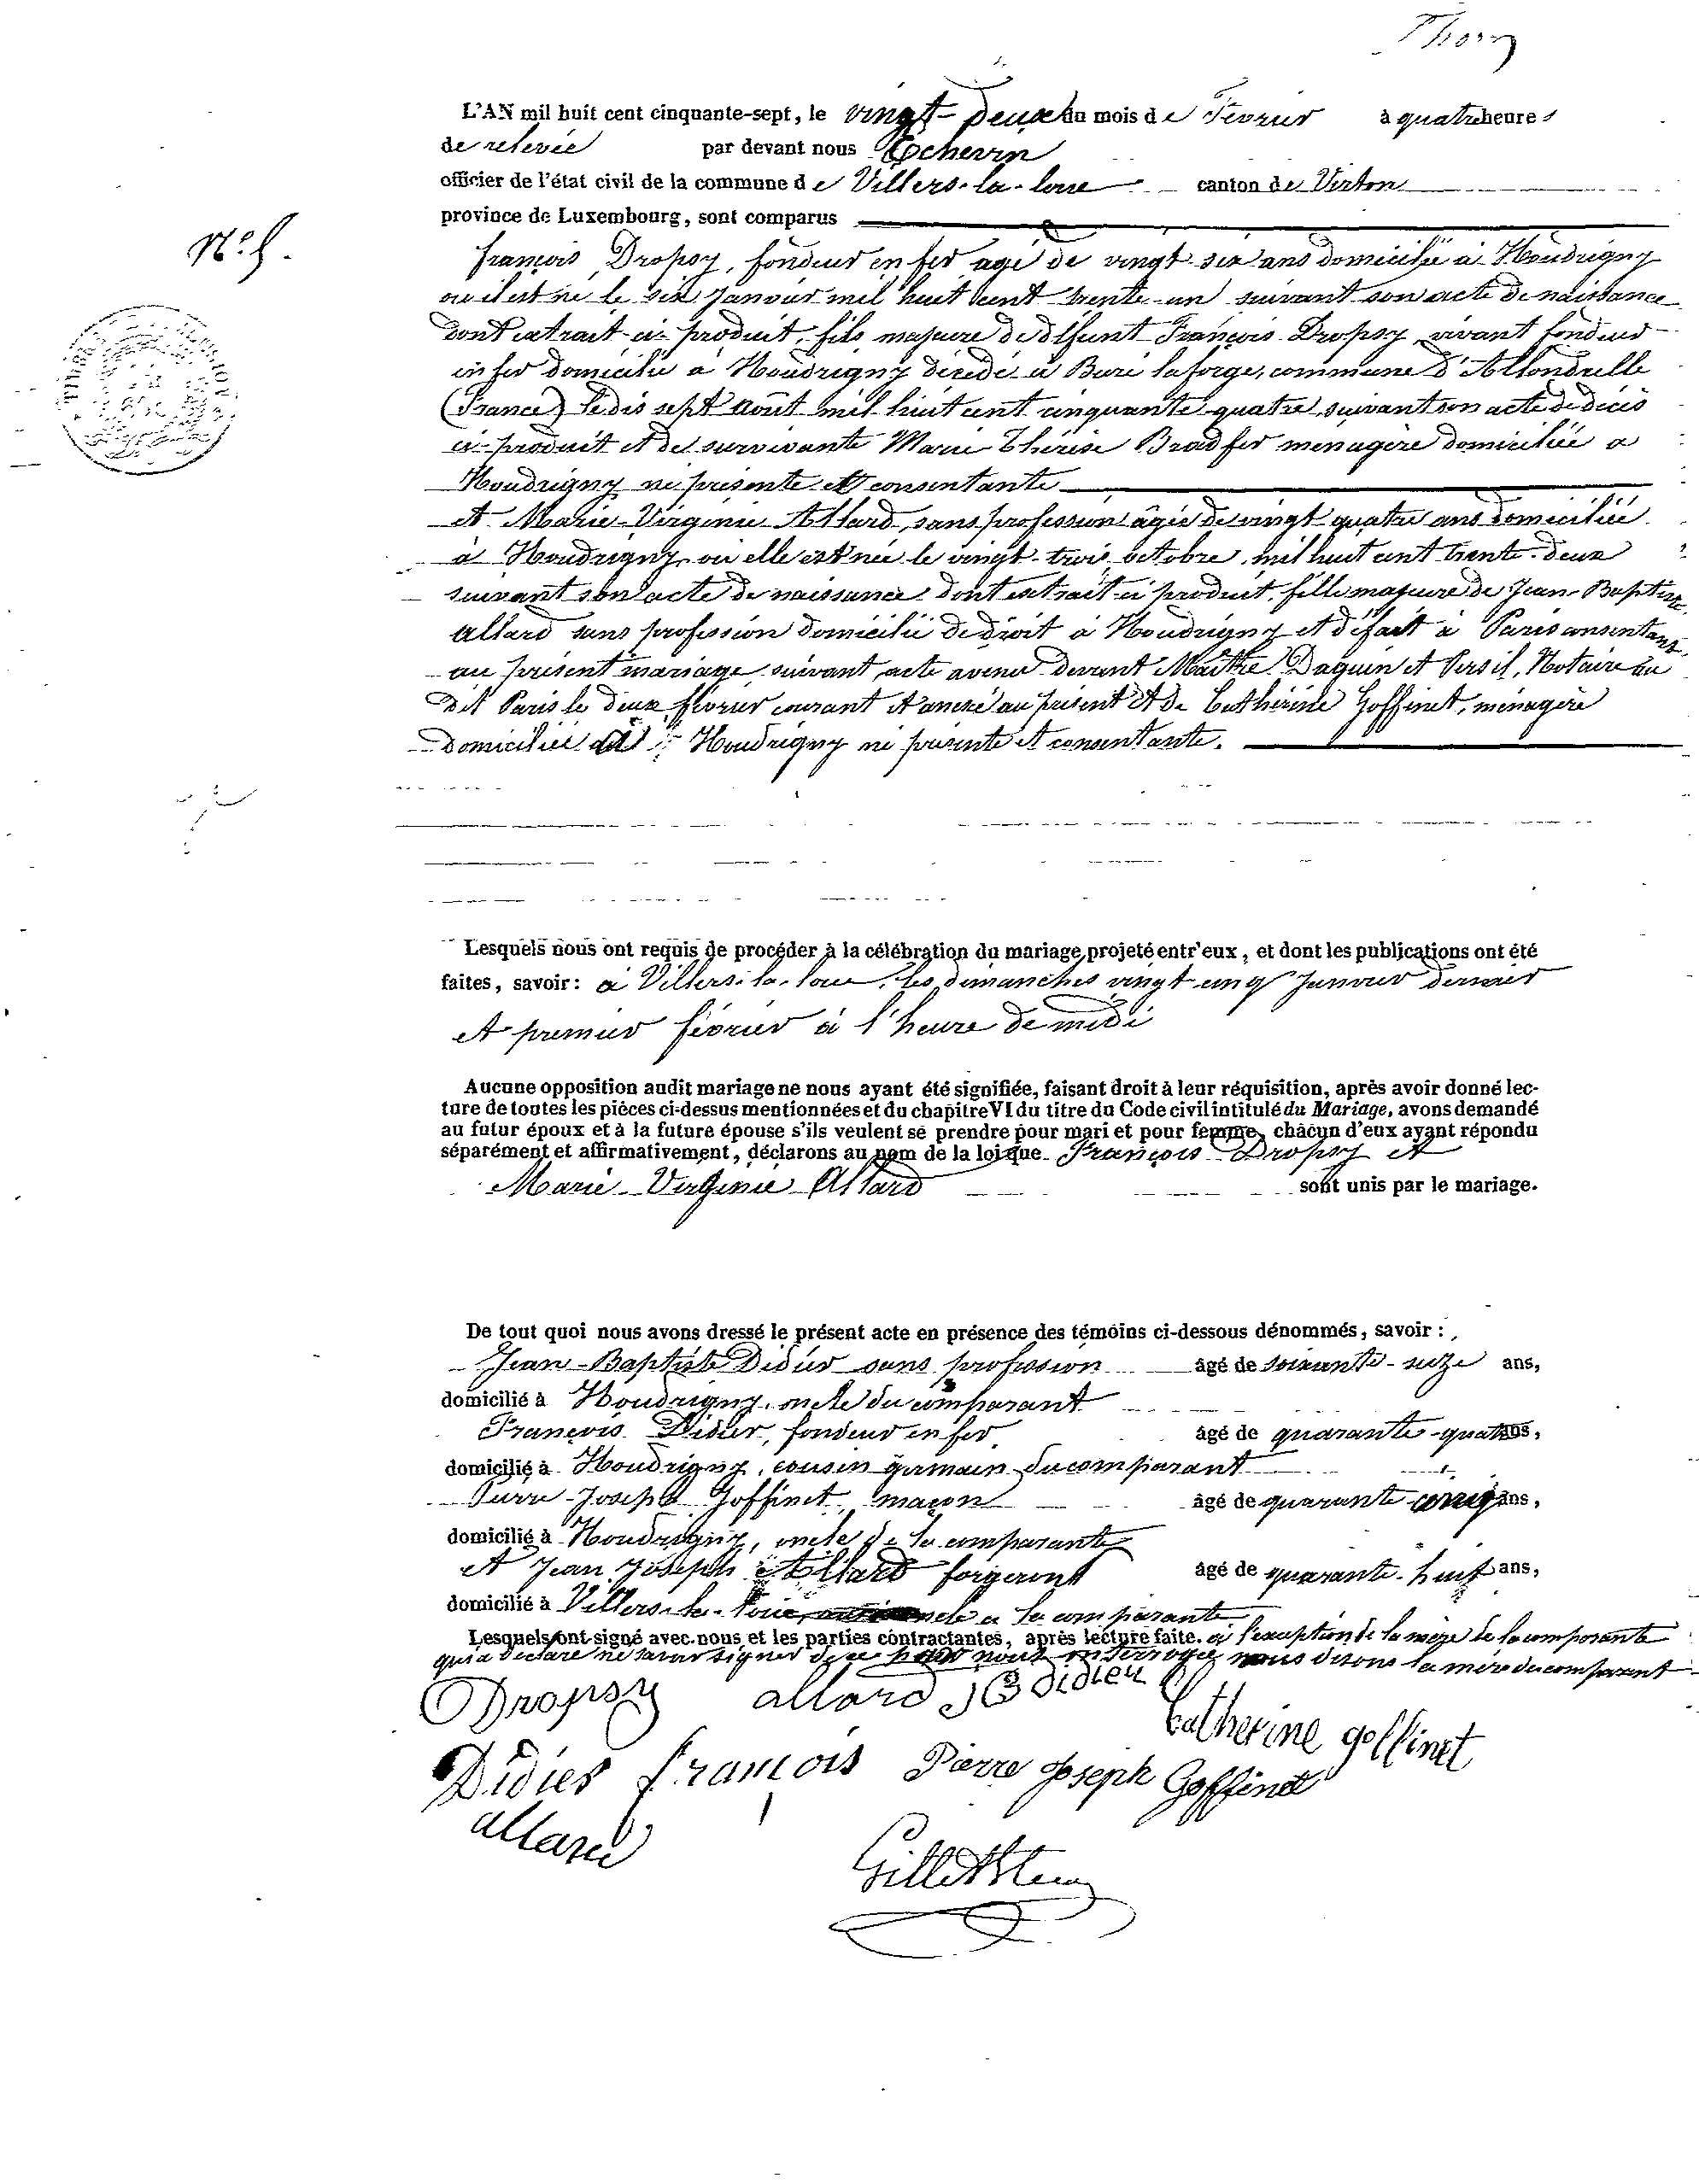 L'AN mil huit cent cinquante-sept, le vingt-deux du mois de Février à quatre heures
de relevée par devant nous Echevin
officier de l'état civil de la commune de Villers-la-loue canton de Virton
province de Luxembourg, sont comparus
N°
françois Dropsy, fondeur en fer agé de vingt-six ans domicilié à Houdrigny
ou il est né le six janvier mil huit cent trente-un suivant son acte de naissance
dont extrait ci-produit, fils majeure de défunt François Dropsy vivant fondeur
en fer domicilié à Houdrigny décédé à Buré laforge, commune d'Allondrelle
(France) le dix sept août mil huit cent cinquante-quatre suivant son acte de décès
ci-produit et de survivante Marie Thérèse Bradfer ménagère domiciliée a
Houdrigny ici présente et consentante
et Marie-Virginie Allard, sans profession âgée de vingt quatre ans domiciliée
à Houdrigny où elle est née le vingt-trois octobre mil huit cent trente-deux
suivant son acte de naissance dont extrait ci produit, fille majeure de Jean-Baptiste
Allard sans profession domicilié de droit à Houdrigny et de fait à Paris consentant
au présent mariage suivant acte avenu devant Maître Daguin et Persil, Notaire au
dit Paris le deux février courant et annexé au présent et de Cathérine Goffinet, ménagère
domiciliée à Houdrigny ici présente et consentante.
Lesquels nous ont requis de procéder à la célébration du mariage projeté entr'eux, et dont les publications ont été
faites, savoir: à Villers-la-loue, les dimanches vingt-cinq Janvier dernier
et premier février à l'heure de midi
Aucune opposition audit mariage ne nous ayant été signifiée, faisant droit à leur réquisition, après avoir donné lec-
ture de toutes les pièces ci-dessus mentionnées et du chapitre VI du titre du Code civil intitulé du Mariage, avons demandé
au futur époux et à la future épouse s'ils veulent se prendre pour mari et pour femme, chacun d'eux ayant répondu
séparément et affirmativement, déclarons au nom de la loi que François Dropsy et
Marie-Virginie Allard sont unis par le mariage.
De tout quoi nous avons dressé le présent acte en présence des témoins ci-dessous dénommés, savoir:
Jean-Baptiste Didier sans profession âgé de soixante-seize ans,
domicilié à Houdrigny, oncle du comparant
François Didier, fondeur en fer, âgé de quarante-quatre ans,
domicilié à Houdrigny, cousin germain du comparant
Pierre-Joseph Goffinet, maçon âgé de quarante-cinq ans,
domicilié à Houdrigny, oncle de la comparante
et Jean Joseph Allard forgeront âgé de quarante-huit ans,
domicilié à Villers-la-loue, oncle a la comparante
Lesquels ont signé avec nous et les parties contractantes, après lecture faite. à l'exception de la mère de la comparante
qui a déclaré ne savoir signer de ce nous disons la mère du comparant
Dropsy allard J B Didier
Catherine goffinet
Didier françois Pierre Joseph Goffinet
allard